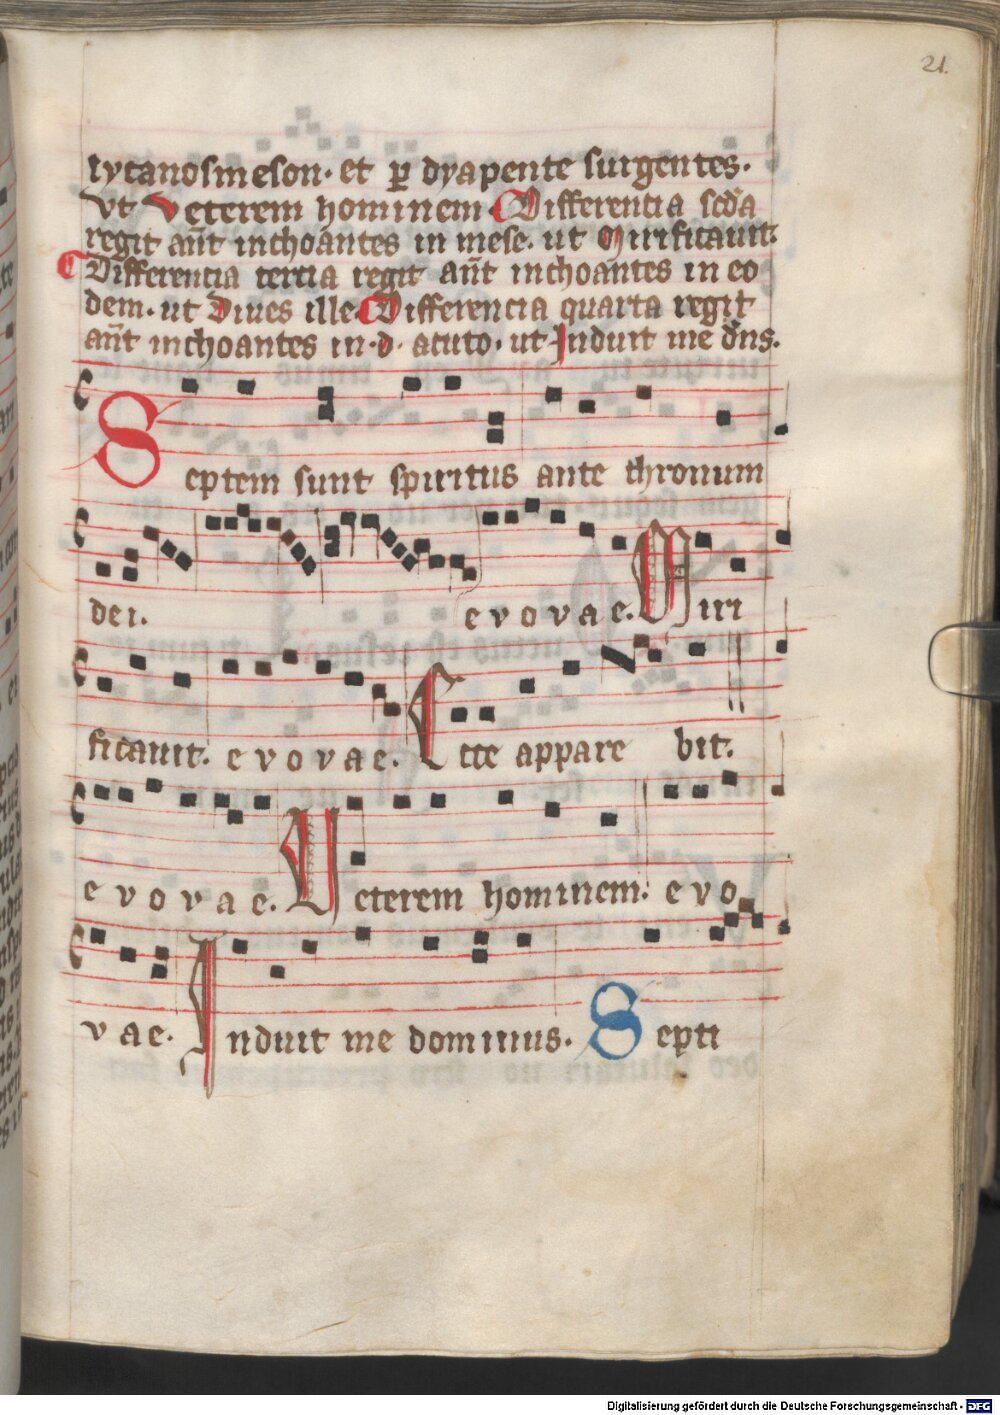 21.
lycanosmeson. et ꝑ dyapente surgentes.
Vt Veterem hominem. Differentia scd̄a
regit an̄t inchoantes in mese. ut Mirificauit.
Differencia tercia regit an̄t inchoantes in eo
dem. ut Diues ille. Differencia quarta regit
an̄t inchoantes in .d. acuto. ut Induit me dn̄s.
Septem sunt spiritus ante thronum
dei. e v o v a e. Miri
ficauit. e v o v a e. Ecce appare bit.
e v o v a e. Veterem hominem. e v o
v a e. Induit me dominus. Septi
Digitalisierung gefördert durch die Deutsche Forschungsgemeinschaft - DFG